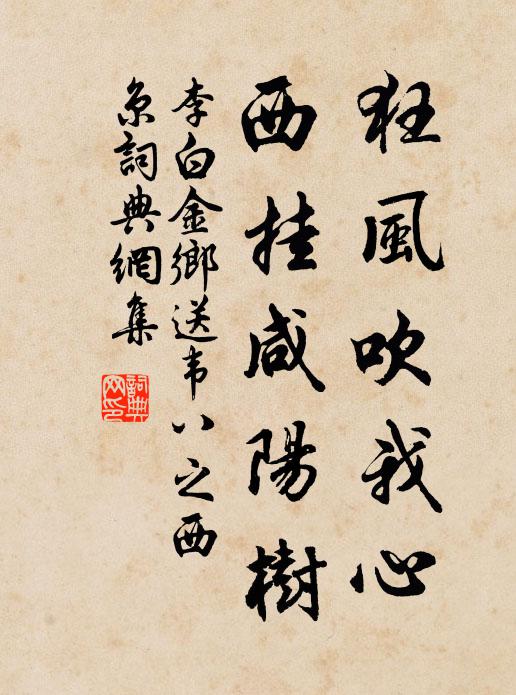 狂風吹我心
西挂咸陽樹
李白金鄉送韦八之西
京詞典網集
詞典
网印